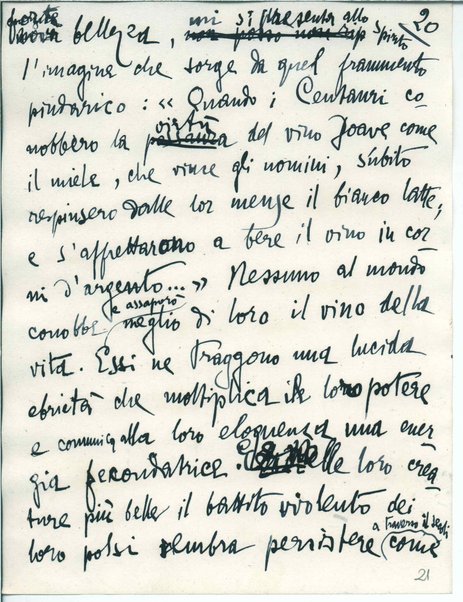 20
bellezza, mi si presenta allo spirito
l'imagine che sorge da quel frammento
pindarico: « Quando i Centauri co-
nobbero la virtù del vino soave come
il miele, che vince gli uomini, sùbito
respinsero dalle lor mense il bianco latte;
e s'affrettarono a bere il vino in cor-
ni d'argento... » Nessuno al mondo
conobbe e assaporò meglio di loro il vino della
vita. Essi ne traggono una lucida
ebrietà che moltiplica il loro potere
e comunica alla loro eloquenza una ener-
gia fecondatrice. Nelle loro crea-
ture più belle il battito violento dei
loro polsi sembra persistere a traverso i secoli come
21